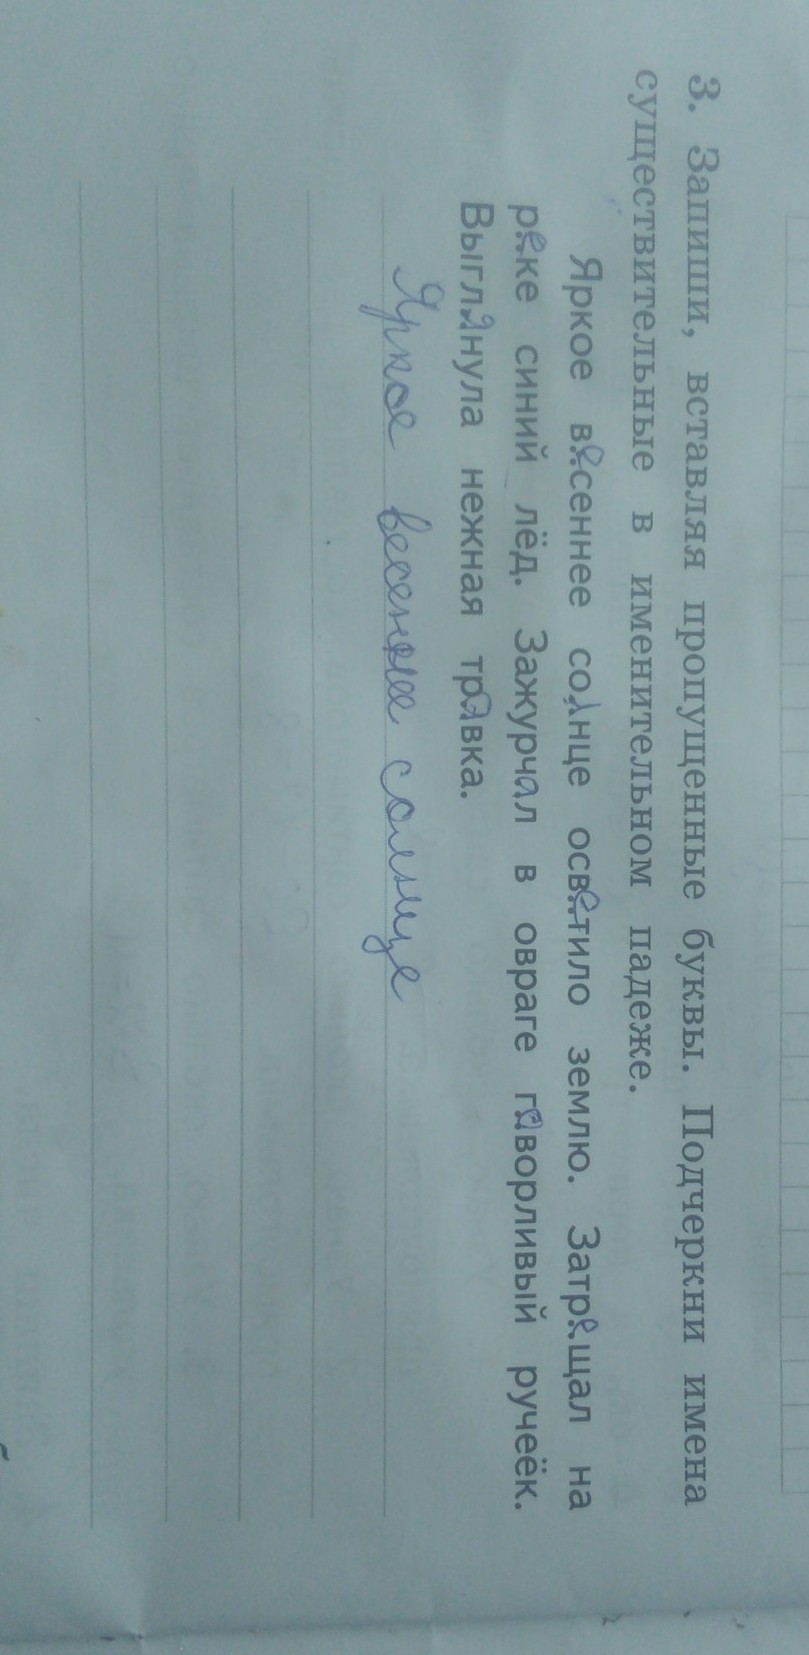 3. Запиши, вставляя пропущенные буквы. Подчеркни имена
существительные в именительном падеже.
Яркое весеннее солнце осветило землю. Затрещал на
реке синий лёд. Зажурчал в овраге говорливый ручеёк.
Выглянула нежная травка.
Яркое весеннее солнце